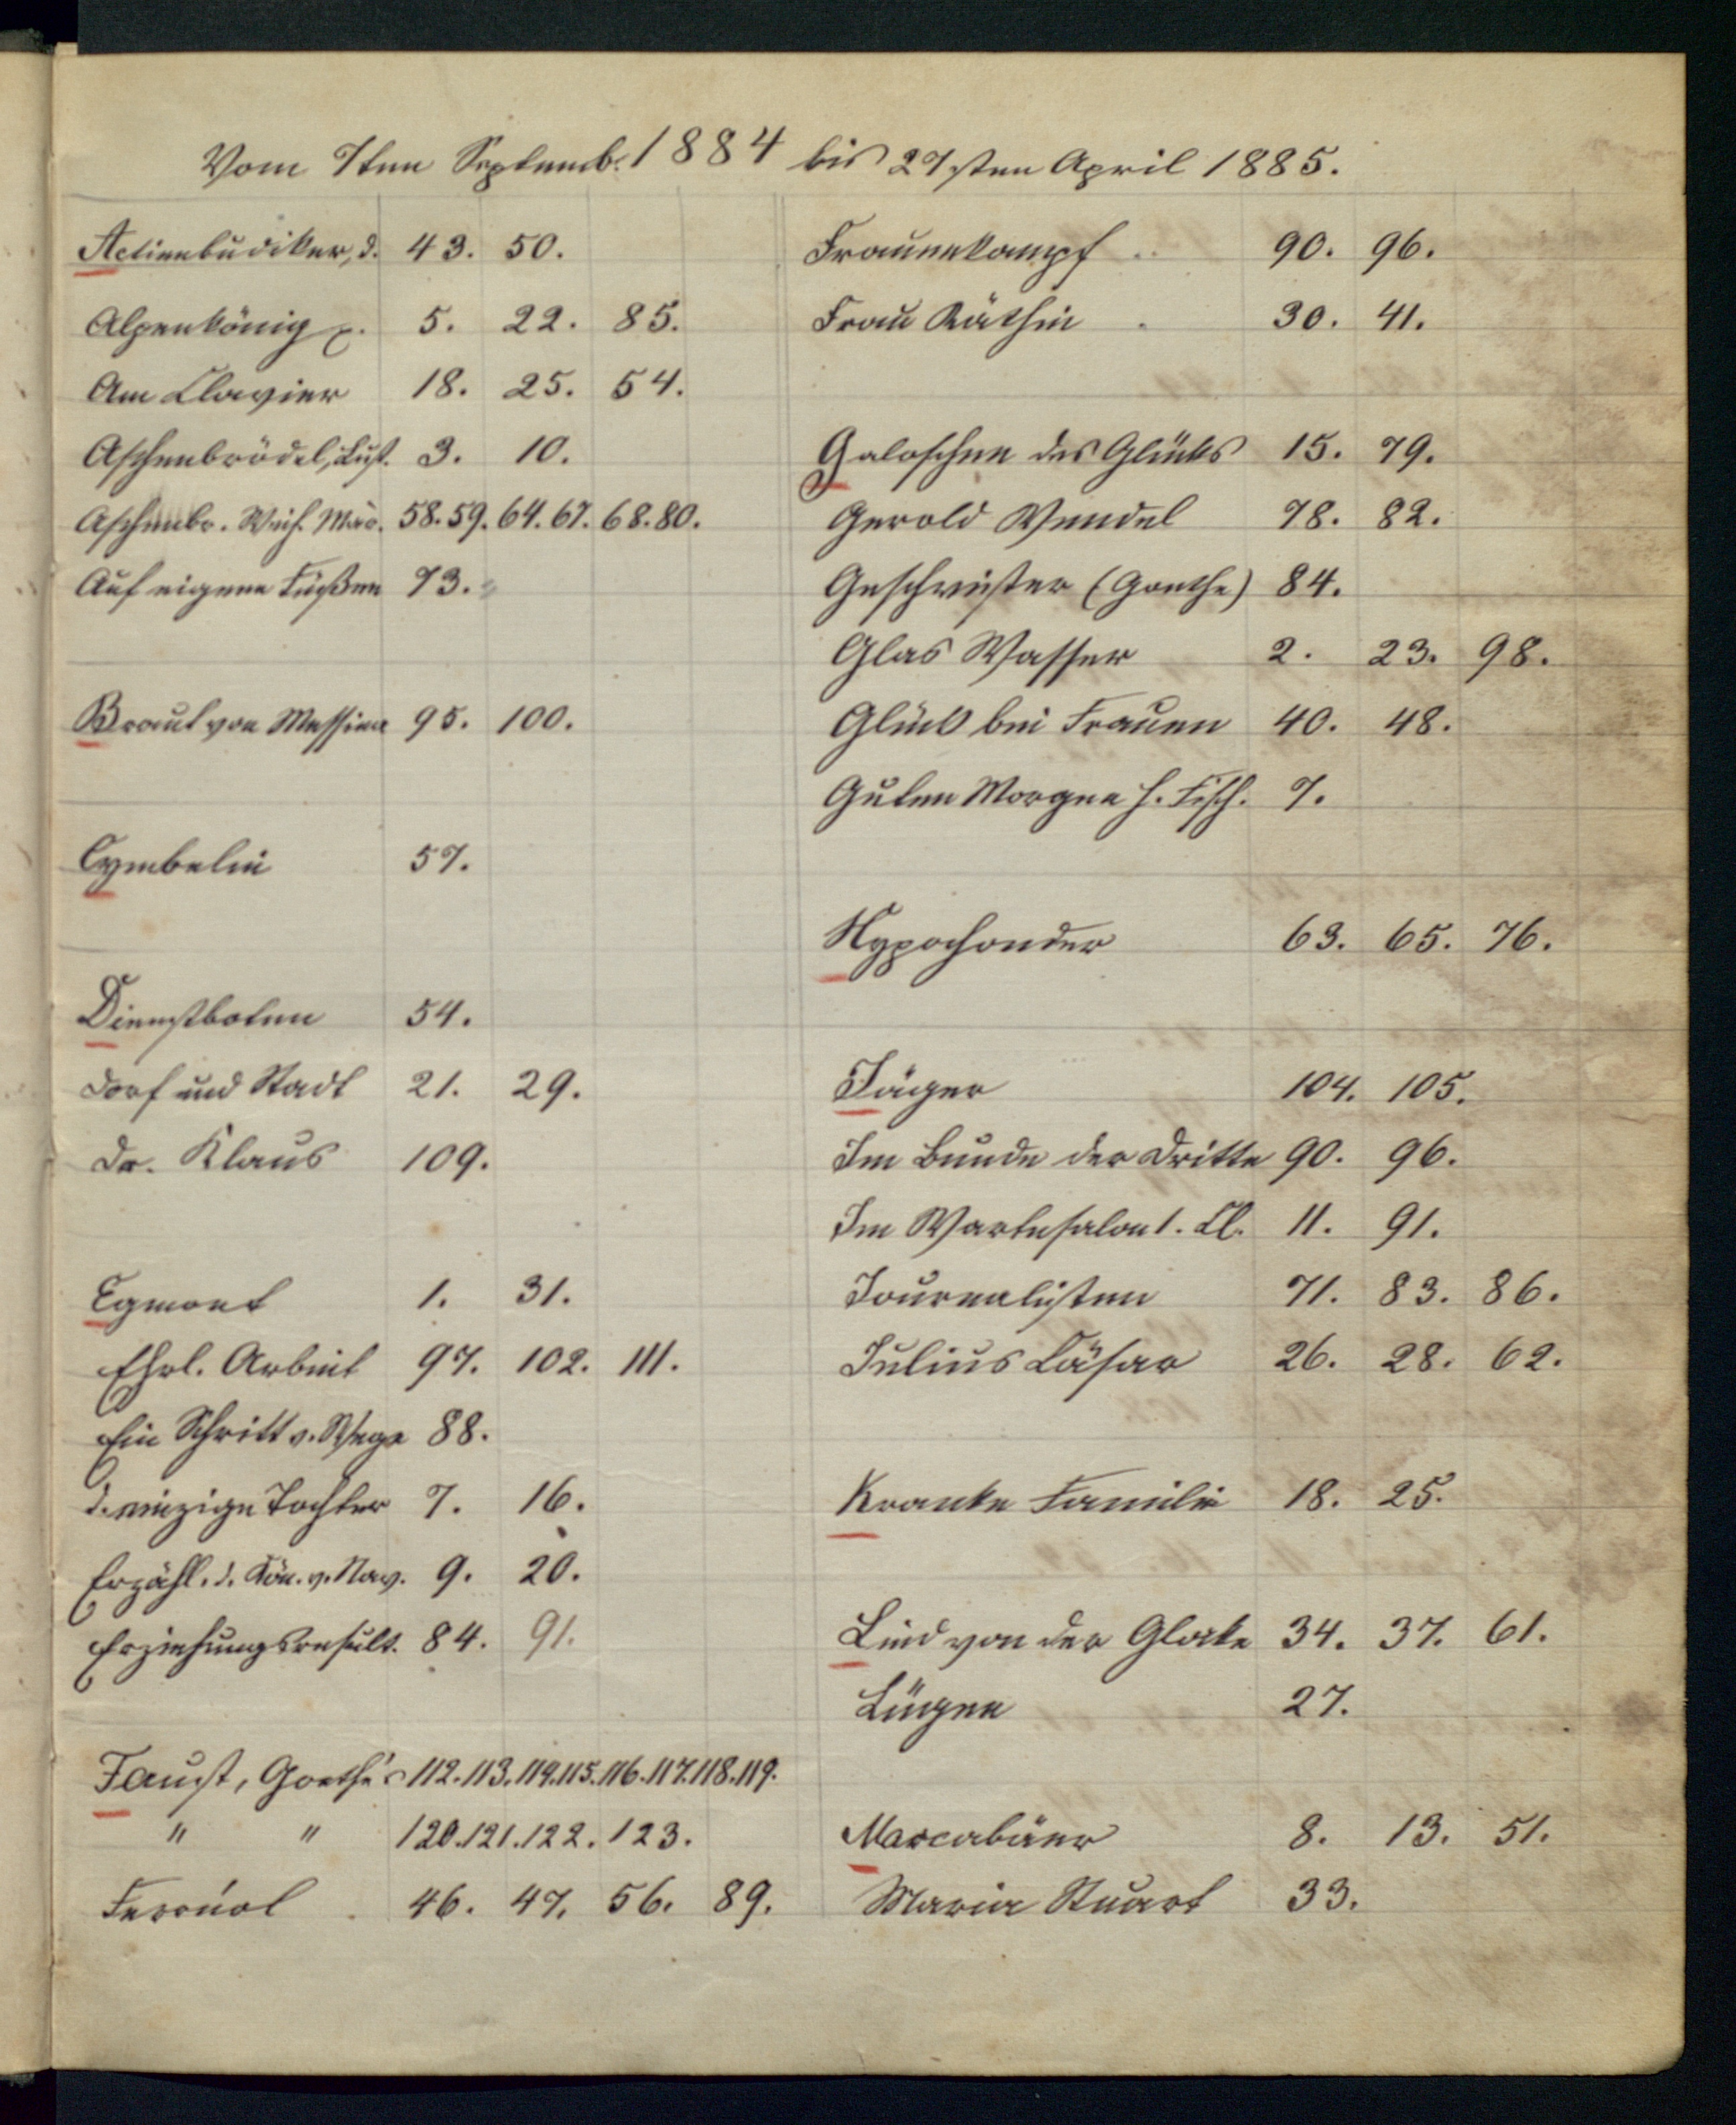 Vom 7ten Septemb. 1884 bis 27sten April 1885.
Actienbudiker, d. 43. 50.
Alpenkönig p. 5. 22. 85.
Am Clavier 18. 25. 54.
Aschenbrödel, Lust. 3. 10.
Aschenbr. Weih. Mär. 58. 59. 64. 67. 68. 80.
Auf eignen Füßen 73.
Braut von Messina 95. 100.
Cymbelin 57.
Dienstboten 54.
Dorf und Stadt 21. 29.
Dr. Klaus 109.
Egmont 1. 31.
Ehrl. Arbeit 97. 102. 111.
Ein Schritt v. Wege 88.
d. einzige Tochter 7. 16.
Erzähl. d. Kön. v. Nav. 9. 20.
Erziehungsresult. 84. 91.
Faust, Goethe's 112. 113. 114. 115. 116. 117. 118. 119.
" " 120. 121. 122. 123.
Ferréol 46. 47. 56. 89.
Frauenkampf 90. 96.
Frau Räthin 30. 41.
Galoschen des Glücks 15. 79.
Gerold Wendel 78. 82.
Geschwister (Goethe) 84.
Glas Wasser 2. 23. 98.
Glück bei Frauen 40. 48.
Guten Morgen H. Fisch. 7.
Hypochonder 63. 65. 76.
Jäger 104. 105.
Im Bunde der Dritte 90. 96.
Im Wartesalon 1. Cl. 11. 91.
Journalisten 71. 83. 86.
Julius Cäsar 26. 28. 62.
Kranke Familie 18. 25.
Lied von der Glocke 34. 37. 61.
Lügen 27.
Maccabäer 8. 13. 51.
Maria Stuart 33.